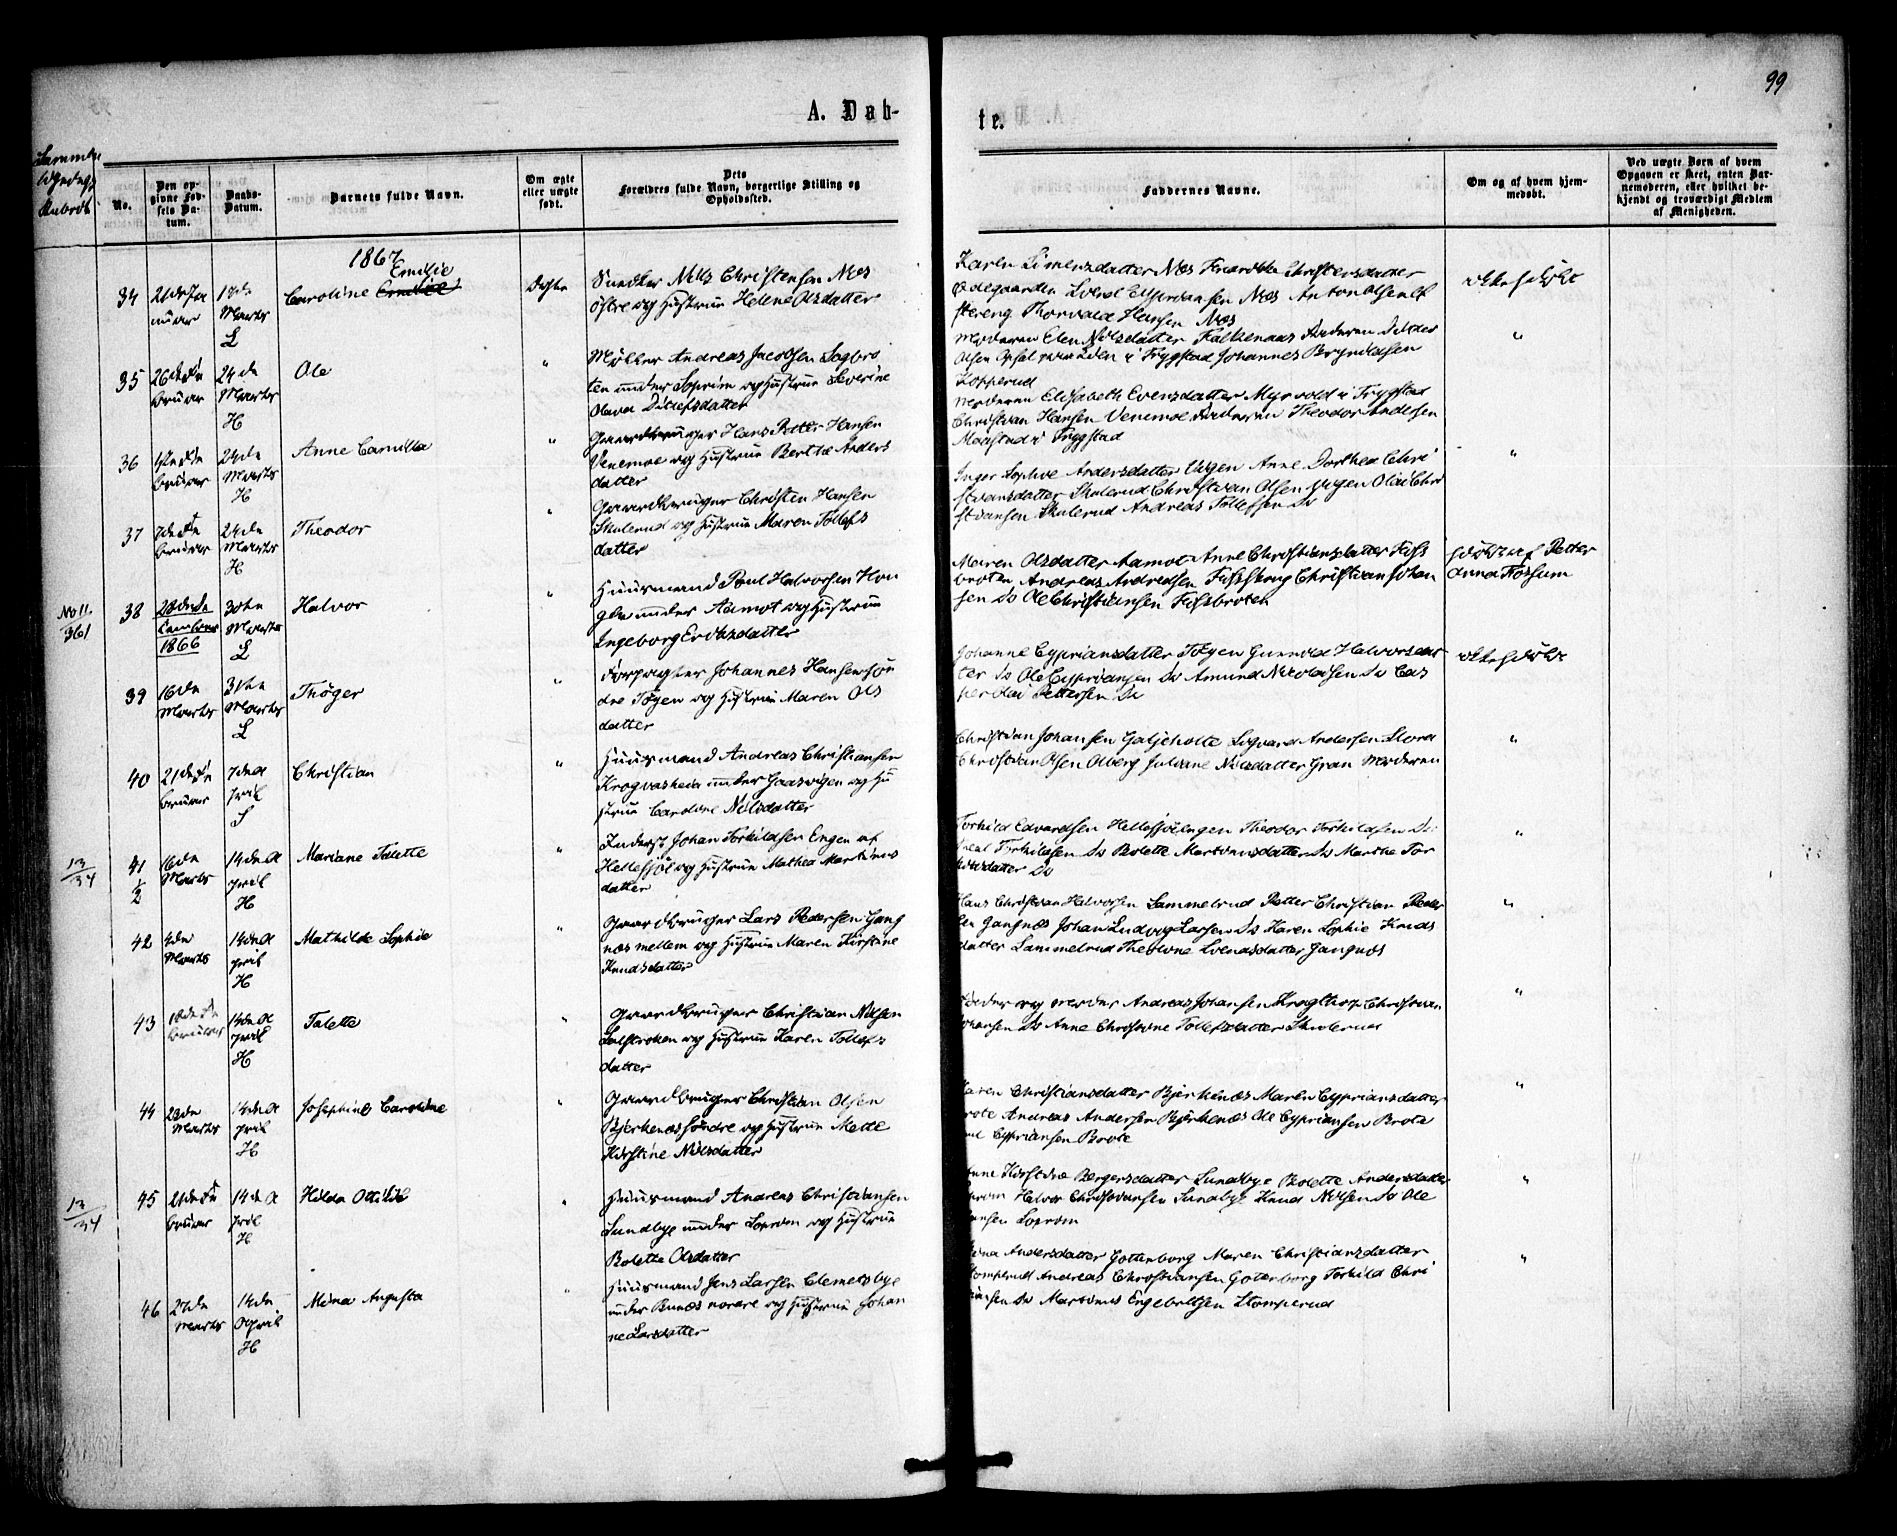 99
A. Døb-
te.
Sammen
No.
Den op-
givne Fød-
sels Da-
tum.
Daabs-
Datum.
Barnets fulde Navn.
Om ægte
eller uægte
født.
Dets
Forældres fulde Navn, borgerlige Stilling og
Opholdssted.
Faddernes Navne.
Om og af hvem hjem-
medøbt.
Ved uægte Børn af hvem
Opgaven er skeet, enten Bar-
nemoderen, eller hvilket be-
kjendt og troværdigt Medlem
af Menigheden.
1867
34
Marts
L
Emilie
Caroline Emilie
Ægte
Snedker Nills Christensen Næs
østre og Hustrue Helene Olsdatter
Karen Simensdatter Næs Fredrikke Christensdatter
Ødegaarden Sverd Cypriansen Næs Anton Olsen Ul
stereng Thorvald Hansen Næs
ikke hjdøbt
35
26de Fe
bruar
24de
Marts
H
Ole
"
Møller Andreas Jacobsen Sagbro
ten under Soprim og Hustrue Severine
Olava Ditlefsdatter
Moderen Elen Nilsdatter Falkenaas Faderen
Olsen Opsal i Trygstad Johannes Brynildsen
Kopperud
"
36
bruar
24de
Marts
H
Anne Camilla
"
Gaardbruger Hans Petter Hansen
Venemoe og Hustrue Berthe Anders
datter
Moderen Elisabeth Evensdatter Myrvold i Trygstad
Christian Hansen Venemoe Faderen Theodor Andersen
Maastad i Trygstad
"
37
7de Fe
bruar
24de
Marts
H
Theodor
"
Gaardbruger Christen Hansen
Skulerud og Hustrue Maren Tollefs
datter
Inger Sophie Andersdatter Uxgen Anne Dorthea Chri
stiansdatter Skulerud Christian Olsen Uxgen Olai Chri
stiansen Skulerud Andreas Tollefsen Do
No 11.
361
38
28de De
cember
1866
30te
Marts
L
Halvor
"
Huusmand Poul Halvorsen Hon
under Aamot og Hustrue
Ingeborg Eriksdatter
Maren Olsdatter Aamot Anne Christiansdatter Foss
broten Andreas Andreasen Fosskrog Christian Johan
sen Do Ole Christiansen Fossbroten
hjdøbt af Petter
Fossum
39
16de
Marts
31te
Marts
L
Thøger
"
Forpagter Johannes Hansen søn
dre Tøgen og Hustrue Maren Ols
datter
Johanne Cypriansdatter Tøgen Gunild Halvorsdat
ter Do Ole Cypriansen Do Amund Nicolaisen Do Cas
per Olai Pettersen Do
ikke hjdøbt
40
21de Fe
bruar
7de A
pril
S
Christian
"
Huusmand Andreas Christiansen
Krogvasheia under Gaasvigen og Hu
strue Caroline Nilsdatter
Christian Johansen Galjeholte Sigvard Andersen Slora
Christian Olsen Olberg Juliane Nilsdatter Gran Moderen
"
13
34
41
1/2
16de
Marts
14de A
pril
H
Mariane Talette
"
Inderst Johan Torkildsen Engen af
Hellesjøl og Hustrue Mathea Martinus
datter
Torkild Edvardsen Hellesjøl engen Theodor Torkildsen Do
Torkildsen Do Bolette Martinusdatter Do Marthe Tor
kildsdatter Do
"
42
4de
Marts
14de A
pril
H
Mathilde Sophie
"
Gaardbruger Lars Pedersen Gang
næs mellem og Hustrue Maren Kirstine
Knudsdatter
Hans Christian Halvorsen Lammelrud Petter Christian Peder
sen Gangnæs Johan Ludvig Larsen Do Karen Sophie Knuds
datter Lammelrud Theoline Svendsdatter Gangnæs
"
43
18de Fe
bruar
14de A
pril
H
Talette
"
Gaardbruger Christian Nilsen
og Hustrue Karen Tollefs
datter
Fader og moder Andreas Johansen Kragtorp Christian
Johansen Do Anne Christine Tollefsdatter Skulerud
"
44
23de
Marts
14de A
pril
H
Josephine Caroline
"
Gaardbruger Christian Olsen
Bjerkenæs søndre og Hustrue Mette
Kirstine Nilsdatter
Karen Christiansdatter Bjerkenæs Maren Cypriansdatter
Brote Andreas Andersen Bjerkenæs Ole Cypriansen Brote
Cypriansen Brote
"
13
34
45
21de Fe
bruar
14de A
pril
H
Hilda Ottilie
"
Huusmand Andreas Christiansen
Sundbye under Soprim og Hustrue
Bolette Olsdatter
Anne Kirstine Bergersdatter Sundbye Bolette Andersdatter
Soprim Halvor Christiansen Sundbye Knud Nilsen Do Ole
Soprim
"
46
27de
Marts
14de
April
H
Mina Augusta
"
Huusmand Jens Larsen Clemetsbye
under Bunæs norare og Hustrue Johan
ne Larsdatter
Andersdatter Gotenborg Maren Christiansdatter
Stomperud Andreas Christiansen Gotenborg Torkild Chri
stiansen Do Martinus Engebretsen Stomperud
"